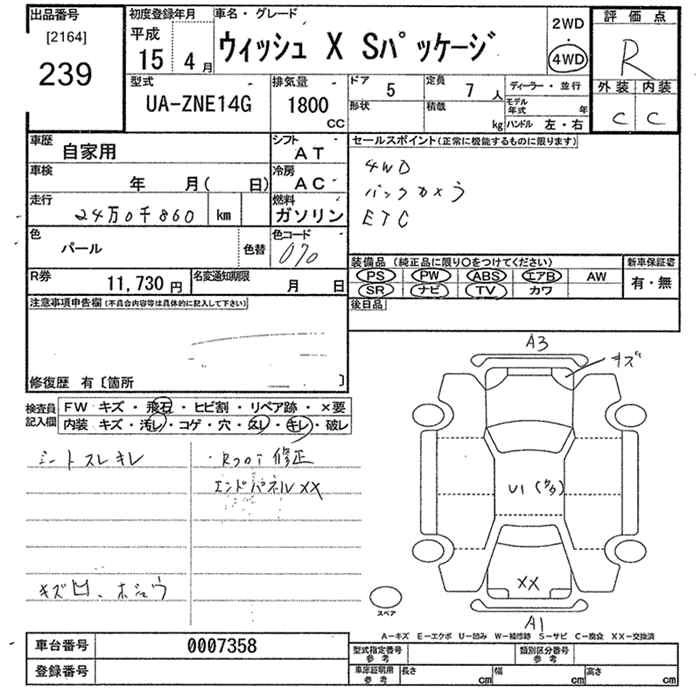 出品番号
[2164]
239
初度登録年月
平成
15年 4月
車名・グレード
ウィッシュ X Sパッケージ
2WD
・
4WD
評価点
R
外装 内装
C C
型式
UA-ZNE14G
排気量
1800
CC
ドア 5
定員 7人
形状
積載 kg
ディーラー・並行
モデル年式 年
ハンドル 左・右
車歴 自家用
シフト AT
車検 年 月( 日)
冷房 AC
走行 24万0千860 km
燃料 ガソリン
色 パール
色替
色コード 070
セールスポイント(正常に機能するものに限ります)
4WD
バックカメラ
ETC
装備品(純正品に限り○をつけてください)
PS PW ABS エアB AW
SR ナビ TV カワ
新車保証書
有・無
R券 11,730円
名変通知期限 月 日
後日品
注意事項申告欄(不具合内容等は具体的に記入して下さい)
修復歴 有〔箇所 〕
検査員記入欄
FW キズ・飛石・ヒビ割・リペア跡・×要
内装 キズ・汚レ・コゲ・穴・スレ・キレ・破レ
シートスレキレ
・Rフロア修正
エンドパネルXX
キズ凹、ボコウ
A3
キズ
U1
XX
A1
スペア
A-キズ E-エクボ U-凹み W-補修跡 S-サビ C-腐食 XX-交換済
車台番号 0007358
登録番号
型式指定番号 参考
類別区分番号 参考
車庫証明用 参考
長さ cm
幅 cm
高さ cm